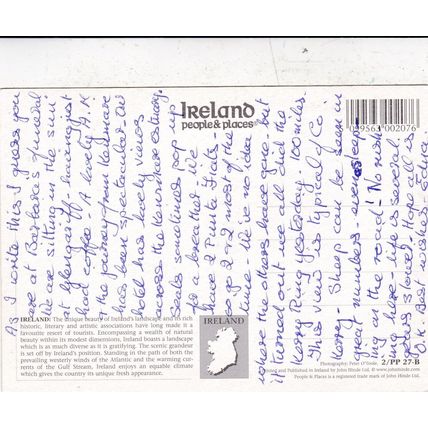 Ireland
people & places
099563 002076
As I write this I guess you
are at Barbara's funeral
We are sitting in the sun
at Glengariff having just
had coffee - A lovely A.M.
the journey from Kenmare
has been spectacular. Our
hotel has lovely views
across the Kenmare estuary
seals sometimes pop up
to breathe! We
have 2 Punta Fiats -
so go 2 or 2 most of the
time - we've no idea
where the others have gone but
it turned out we all did the
Kerry Ring yesterday - 100 miles.
This view is typical of Co.
Kerry - Sheep can be seen in
great numbers - even sleep-
ing in the road! No rush-
ing here - life is several
paces slower - Hope all is
O.K. Best wishes - Edna
IRELAND: The unique beauty of Ireland's landscape and its rich
historic, literary and artistic associations have long made it a
favourite resort of tourists. Encompassing a wealth of natural
beauty within its modest dimensions, Ireland boasts a landscape
which is as much diverse as it is gratifying. The scenic grandeur
is set off by Ireland's position. Standing in the path of both the
prevailing westerly winds of the Atlantic and the warming cur-
rents of the Gulf Stream, Ireland enjoys an equable climate
which gives the country its unique fresh appearance.
IRELAND
Photography: Peter O'Toole, 2/PP 27-B
Published and Printed in Ireland by John Hinde Ltd. © www.johnhinde.com
People & Places is a registered trade mark of John Hinde Ltd.